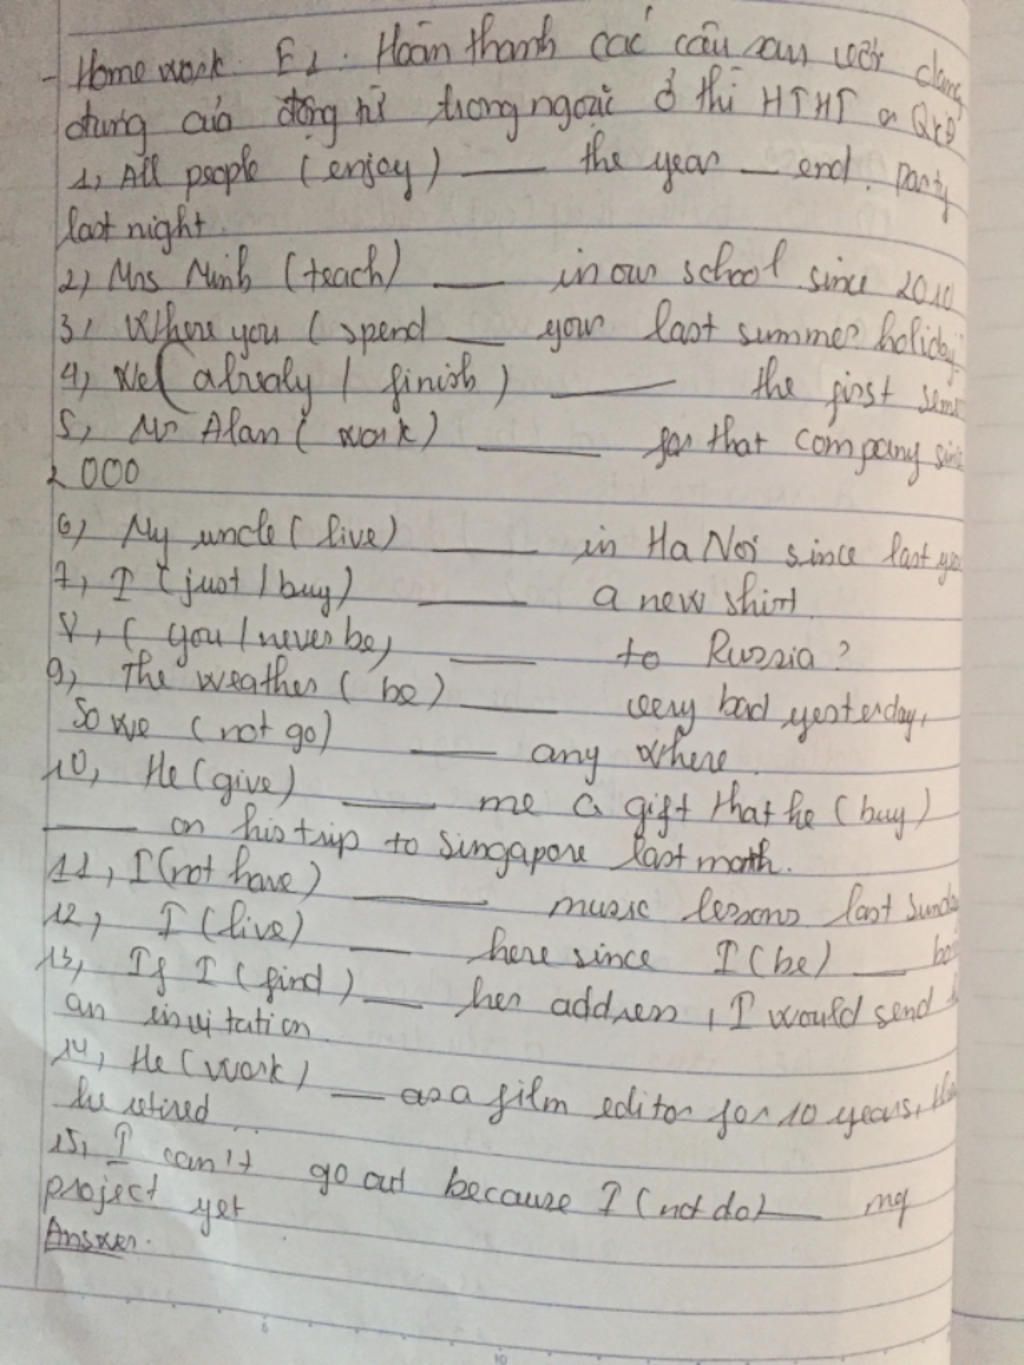 - Homework. E1. Hoàn thành các câu sau với dạng
đúng của động từ trong ngoặc ở thì HTHT or QKĐ
1, All people (enjoy) ___ the year _ end. party
last night.
2, Mrs Minh (teach) ___ in our school since 2010
3, Where you (spend ___ your last summer holiday?
4, We (already / finish) ___ the first
5, Mr Alan (work) ___ for that company
2000
6) My uncle (live) ___ in Ha Noi since last
7, I (just / buy) ___ a new shirt
8, ( you / never be, ___ to Russia?
9, The weather (be) ___ very bad yesterday,
so we (not go) ___ any where.
10, He (give) ___ me a gift that he (buy)
___ on his trip to Singapore last month.
11, I (not have) ___ music lessons last Sunday
12, I (live) ___ here since I (be) ___
13, If I (find) ___ her address, I would send
an invitation.
14, He (work) ___ as a film editor for 10 years,
he retired..
15, I can't go out because I (not do) ___ my
project yet
Answer.